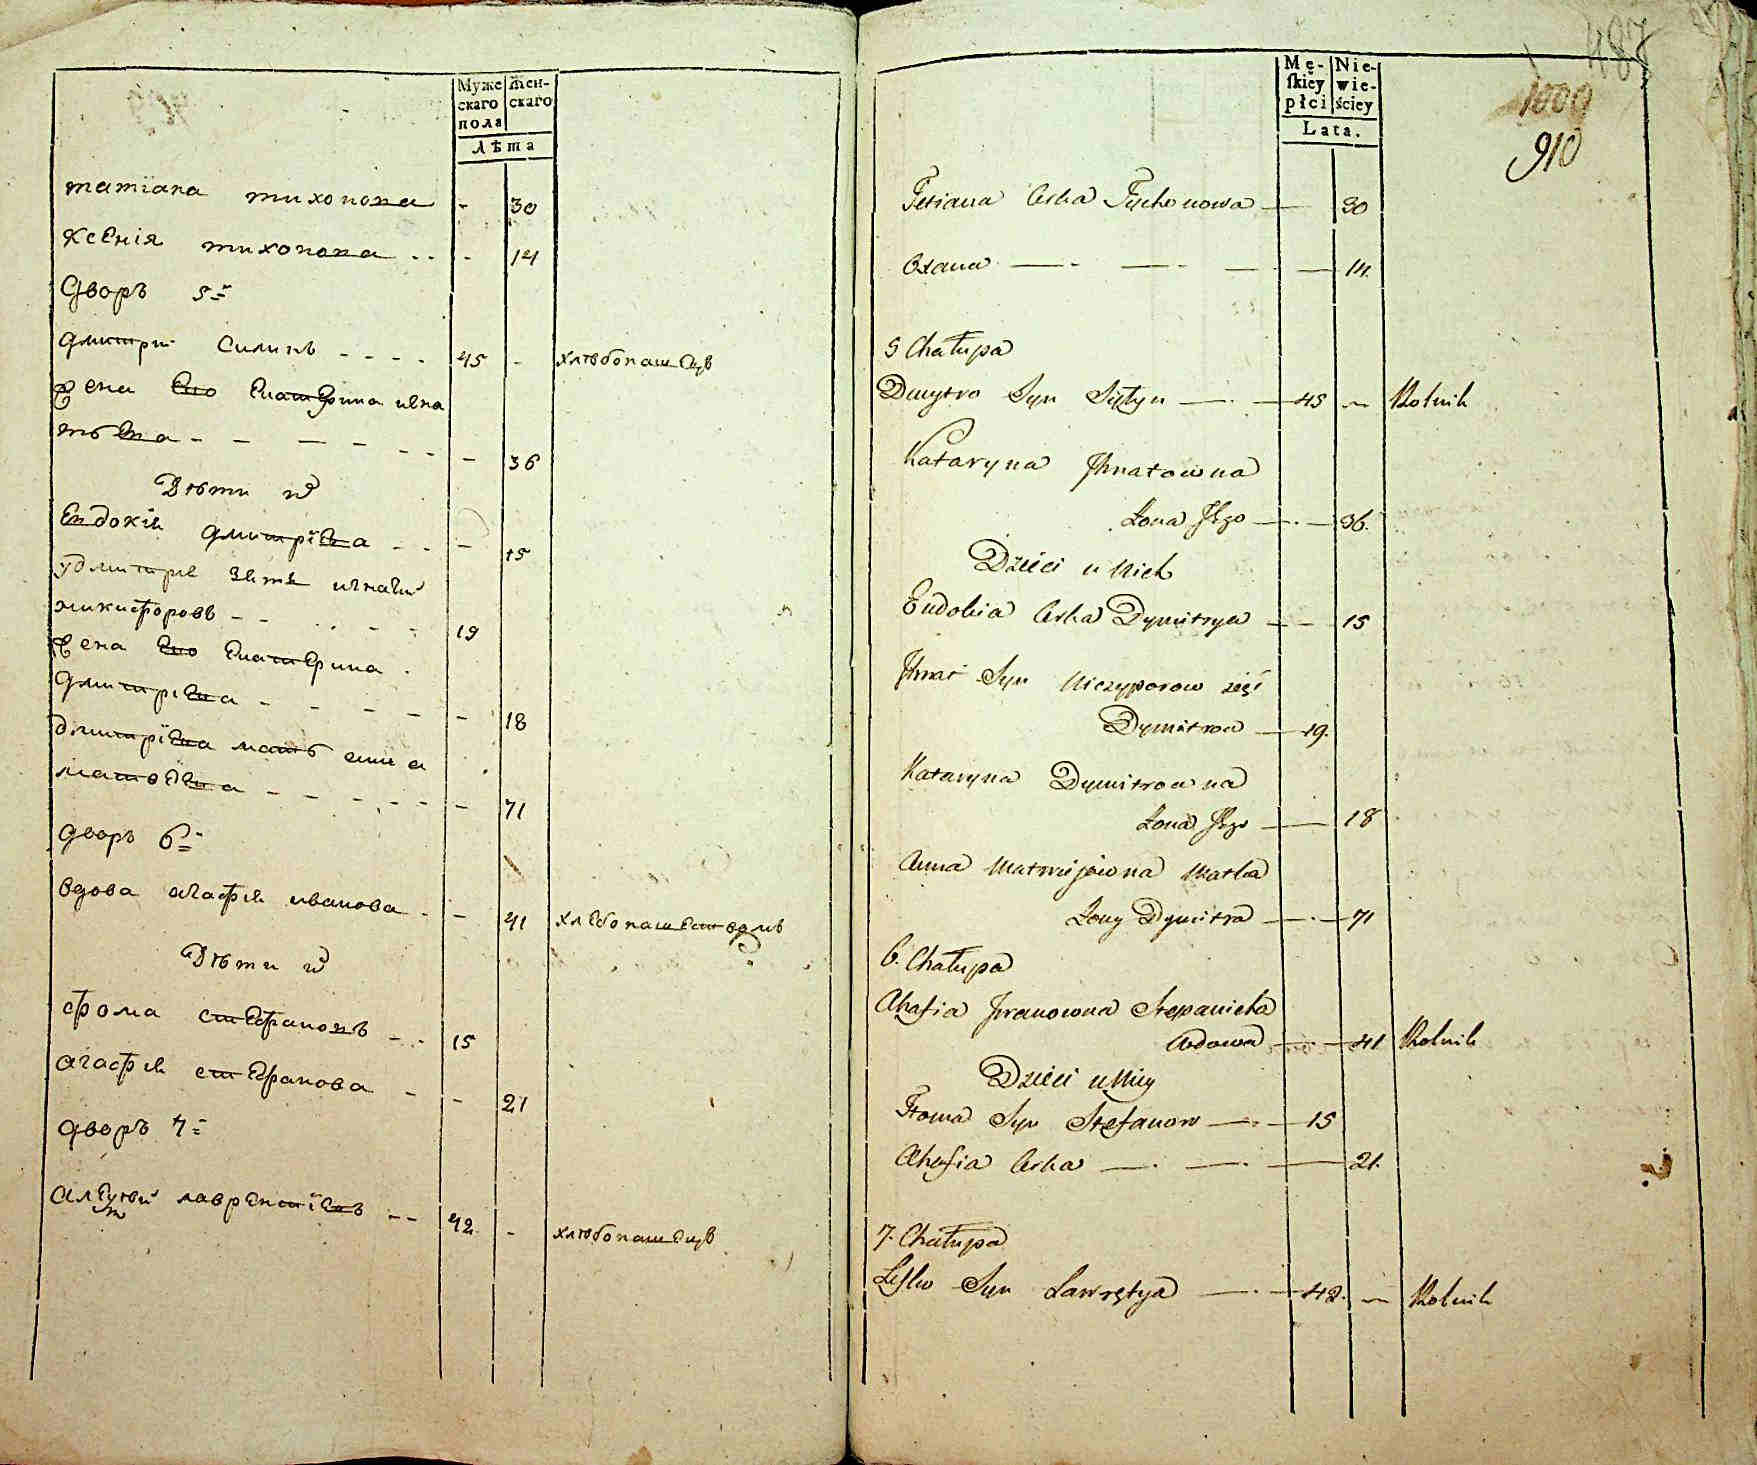 Муже
скаго
пола
Жен-
скаго
лѣта
татïана тихонова - 30
ксенïя тихонова - - - 14
дворъ 5й
дмитрй силинъ - - - - 45 - хлѣбопашецъ
жена его екатерина игна
тѣва - - - - - - - 36
Дѣти их
евдокïя дмитрïева - - - 15
у дмитрія зять игнатй
никифоровъ - - - - - 19
жена его екатерина
дмитрïева - - - - - 18
дмитрïева мать анна
матвѣева - - - - - - 71
дворъ 6й
вдова агафїя иванова - - 41 хлебопашествомъ
Дѣти ей
фома стефановъ - - 15
агафїя стефанова - - 21
дворъ 7й
алексѣй лаврентїевъ - - 42 - хлѣбопашецъ
Mę-
ſkiéy
płci
Nie-
wie-
ściey
Lata.
487
1000
910
Tetiana Corka Tychonowa — 30
Oxana — - — - — - — 14.
5 Chałupa
Dmytro Syn Siłyn — - — 45 ~ Rolnik
Kataryna Jhnatowna
Żona Jego — - — 36.
Dzieci u Nich
Eudokia Corka Dymitrya — — 15
Jhnat Syn Niczyporow zięć
Dymitrow — 19.
Kataryna Dymitrowna
Żona Jego — 18
Anna Matwiejowna Matka
Żony Dymitra — - — 71
6. Chałupa
Ahafia Jwanowna Stepanicha
Wdowa — - — 41 Rolnik
Dzieci u Niey
Thoma Syn Stefanow — - — 15
Ahafia Corka — - — - — 21.
7. Chałupa
Lesko Syn Lawrętya — - — 42. ~ Rolnik